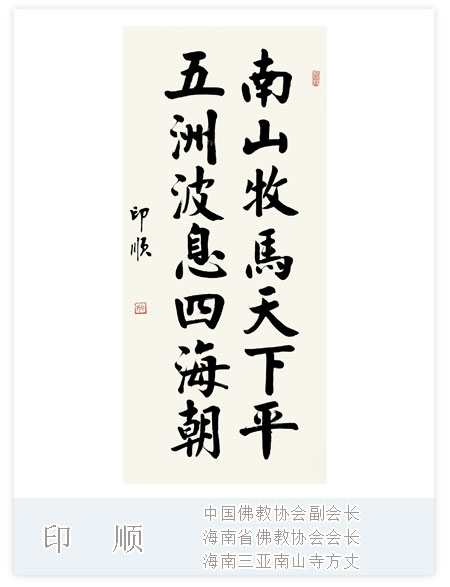 南山牧馬天下平
五洲波息四海朝
印顺
印 顺
中国佛教协会副会长
海南省佛教协会会长
海南三亚南山寺方丈